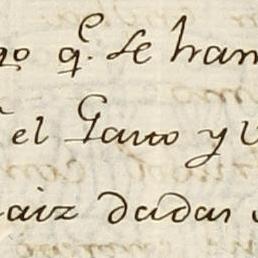 go qᵉ. se han
el Garro y V
aiz dadas